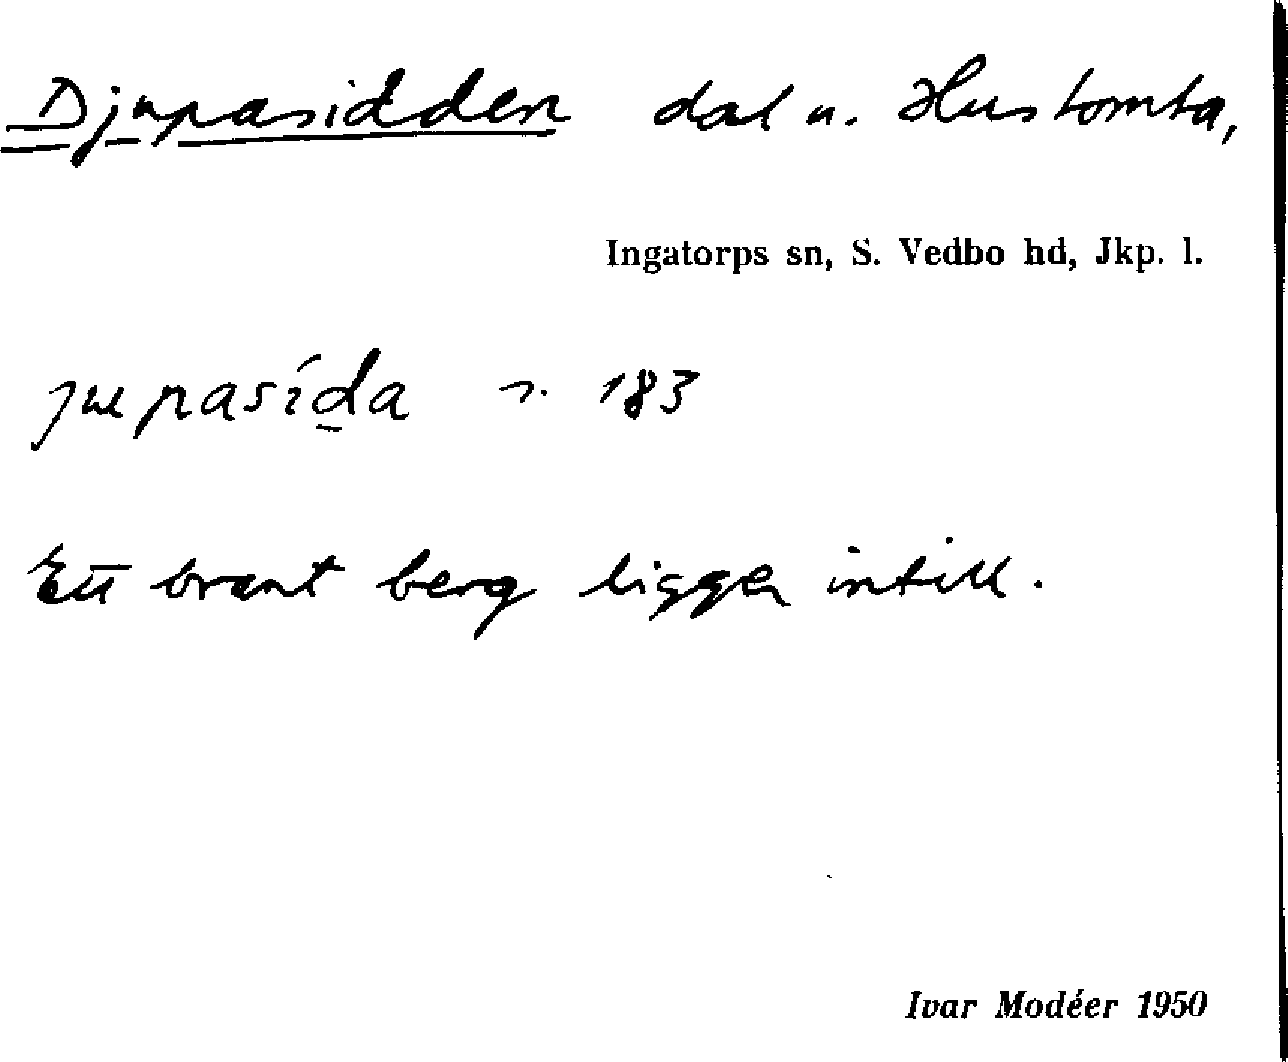 Djupasidden dal u. Hustomta,
Ingatorps sn, S. Vedbo hd, Jkp. l.
jupasída s. 183
Ett brant berg ligger intill.
Ivar Modéer 1950